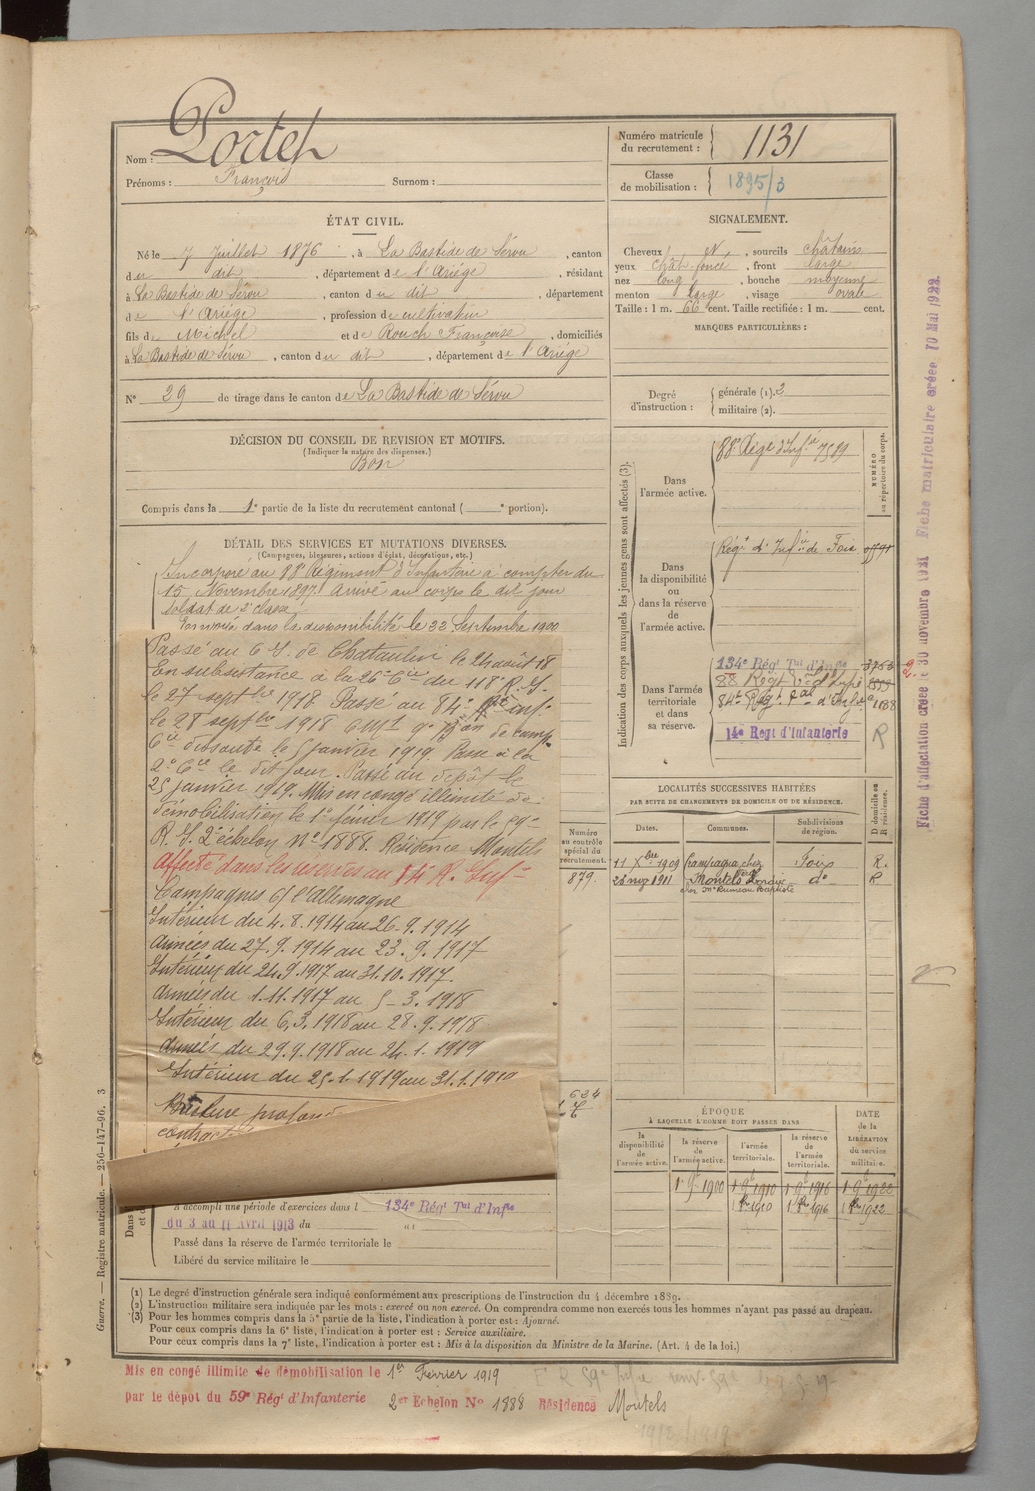 Nom : Portes
Prénoms : François Surnom :
Numéro matricule du recrutement : 1131
Classe de mobilisation : 1895/3
ÉTAT CIVIL.
Né le 7 Juillet 1876, à La Bastide de Sérou, canton
du dit, département de l'Ariège, résidant
à La Bastide de Sérou, canton du dit, département
de l'Ariège, profession de cultivateur
fils de Michel et de Rouch Françoise, domiciliés
à La Bastide de Sérou, canton du dit, département de l'Ariège
N° 29 de tirage dans le canton de La Bastide de Sérou
SIGNALEMENT.
Cheveux N, sourcils châtains
yeux chât foncé, front large
nez long, bouche moyenne
menton large, visage ovale
Taille : 1 m. 66 cent. Taille rectifiée : 1 m. cent.
MARQUES PARTICULIÈRES :
Degré d'instruction : générale (1). 2
militaire (2).
DÉCISION DU CONSEIL DE REVISION ET MOTIFS.
(Indiquer la nature des dispenses.)
Bon
Compris dans la 1e partie de la liste du recrutement cantonal ( e portion).
DÉTAIL DES SERVICES ET MUTATIONS DIVERSES.
(Campagnes, blessures, actions d'éclat, décorations, etc.)
Incorporé au 88e Régiment d'Infanterie à compter du
15 Novembre 1897. Arrivé au corps le dit jour
Soldat de 2e classe
Envoyé dans la disponibilité le 22 Septembre 1900
Passé au 6 d. de Chataulin le 24 août 18
En subsistance à la 26e Cie du 118e R.I.
le 27 septbre 1918 Passé au 84e Rt inf.
le 28 septbre 1918 9e Bon de camp
Cie dissoute le 5 janvier 1919 Passé à la
2e Cie le dit jour. Passé au dépôt le
25 janvier 1919. Mis en congé illimité de
démobilisation le 1er février 1919 par le 59e
R.I. 2e échelon No 1888. Résidence Montels
Affecté dans les réserves au 14 R. Infie
Campagnes c/ l'Allemagne
Intérieur du 4.8.1914 au 26.9.1914
Armées du 27.9.1914 au 23.9.1917
Intérieur du 24.9.1917 au 31.10.1917.
Armées du 1.11.1917 au 5-3.1918
Intérieur du 6.3.1918 au 28.9.1918
Armées du 29.9.1918 au 24.1.1919
Intérieur du 25.1.1919 au 31.1.1919
profonde
contract
A accompli une période d'exercices dans l 134e Régt Tal d'Infie
du 3 au 11 Avril 1913 du au
Passé dans la réserve de l'armée territoriale le
Libéré du service militaire le
Indication des corps auxquels les jeunes gens sont affectés (3).
NUMÉRO au répertoire du corps.
Dans l'armée active.
88e Régt d'Infie 7589
Dans la disponibilité ou dans la réserve de l'armée active.
Régt d'Infie de Foix
Dans l'armée territoriale et dans sa réserve.
134e Régt Tal d'Infie
88 Régt
84e Régt tal d'Infie 1538
14e Regt d'Infanterie R
LOCALITÉS SUCCESSIVES HABITÉES
PAR SUITE DE CHANGEMENTS DE DOMICILE OU DE RÉSIDENCE.
Numéro au contrôle spécial du recrutement.
Dates. Communes. Subdivisions de région. D domicile ou R résidence.
879.
11 Xbre 1909 Campagna, chez Foix R.
28 1911 Montels do R
chez Mr Rumeau Baptiste
624
ÉPOQUE
À LAQUELLE L'HOMME DOIT PASSER DANS
la disponibilité de l'armée active.
la réserve de l'armée active.
l'armée territoriale.
la réserve de l'armée territoriale.
DATE de la LIBÉRATION du service militaire.
1 9e 1900 1 9e 1910 1 9e 1916 1 9e 1922
1910 1916 1922
(1) Le degré d'instruction générale sera indiqué conformément aux prescriptions de l'instruction du 4 décembre 1889.
(2) L'instruction militaire sera indiquée par les mots : exercé ou non exercé. On comprendra comme non exercés tous les hommes n'ayant pas passé au drapeau.
(3) Pour les hommes compris dans la 5e partie de la liste, l'indication à porter est : Ajourné.
Pour ceux compris dans la 6e liste, l'indication à porter est : Service auxiliaire.
Pour ceux compris dans la 7e liste, l'indication à porter est : Mis à la disposition du Ministre de la Marine. (Art. 4 de la loi.)
Mis en congé illimité de démobilisation le 1er Février 1919
par le dépot du 59e Régt d'Infanterie 2er Echelon No 1888 Résidence Montels
Guerre. — Registre matricule. — 256-147-96. 3
Fiche d'affectation créée le 30 novembre 1921 Fiche matriculaire créée 10 Mai 1922